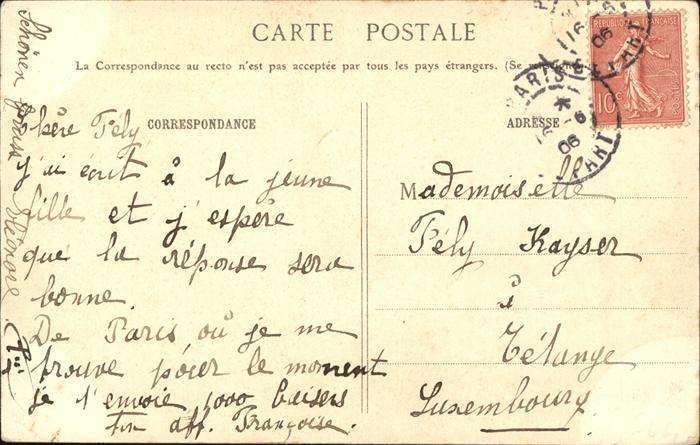 CARTE POSTALE
La Correspondance au recto n'est pas acceptée par tous les pays étrangers. (Se
CORRESPONDANCE
ADRESSE
RÉPUBLIQUE FRANÇAISE
10c
PARIS DÉPART
16 -6
06
Chère Fély
J'ai écrit à la jeune
fille et j'espère
que la réponse sera
bonne.
De Paris, où je me
trouve pour le moment
je t'envoie 1000 baisers
Ton aff. Françoise.
Schönen Gruss
Mademoiselle
Fély Kayser
à
Tétange
Luxembourg